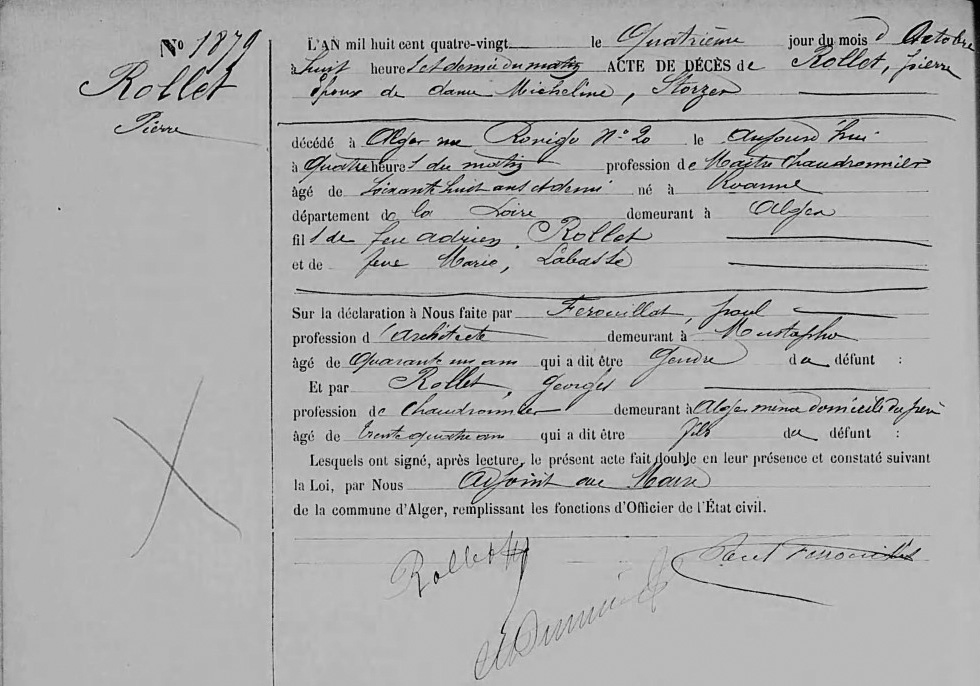 N° 1879
Rollet
Pierre
L'AN mil huit cent quatre-vingt le Quatrième jour du mois d'Octobre
à huit heures et demie du matin ACTE DE DÉCÈS de Rollet, pierre
Époux de dame Micheline, Storzer
décédé à Alger rue Rovigo N° 20 le aujourd'hui
à quatre heures du matin profession de Maitre Chaudronnier
âgé de soixante huit ans et demi né à Roanne
département de la Loire demeurant à Alger
fils de feu adrien, Rollet
et de feue Marie, Labasse
Sur la déclaration à Nous faite par Ferouillat, paul
profession d'architecte demeurant à Mustapha
âgé de Quarante un ans qui a dit être Gendre du défunt :
Et par Rollet, Georges
profession de Chaudronnier demeurant à Alger même domicile du
âgé de trente quatre ans qui a dit être fils du défunt :
Lesquels ont signé, après lecture, le présent acte fait double en leur présence et constaté suivant
la Loi, par Nous Adjoint au Maire
de la commune d'Alger, remplissant les fonctions d'Officier de l'État civil.
Rollet
Paul